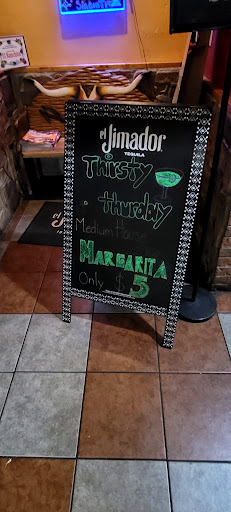 el Jimador
TEQUILA
Thirsty
thurday
Medium House
MARGARITA
Only $5
el